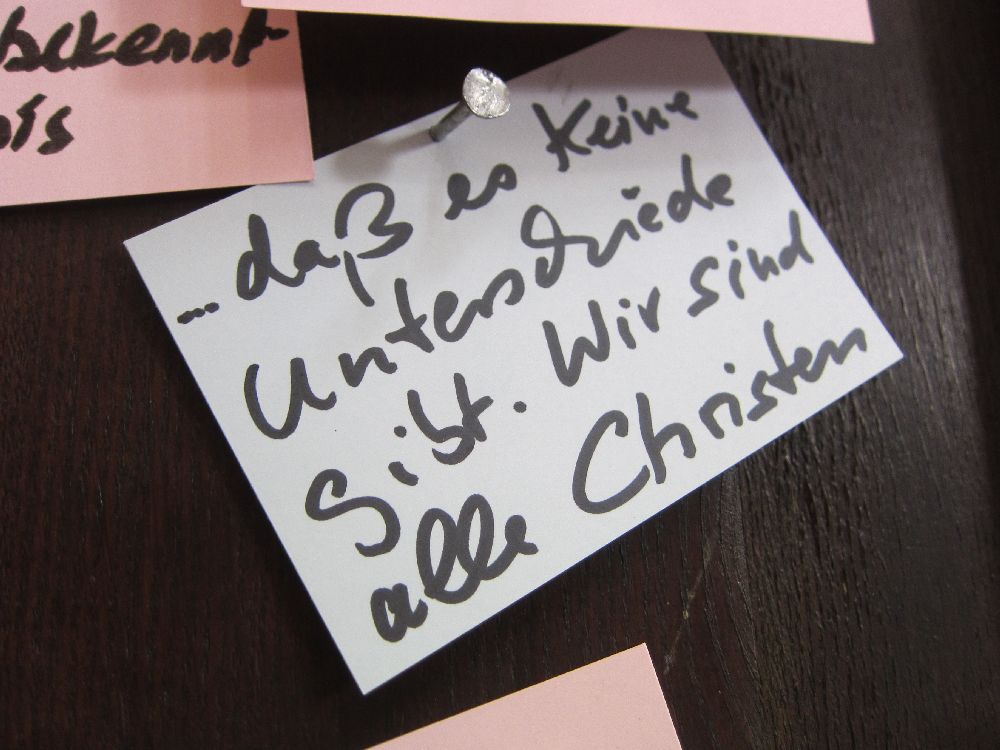 bekennt-
nis
...daß es Keine
Unterschiede
Gibt. Wir sind
alle Christen